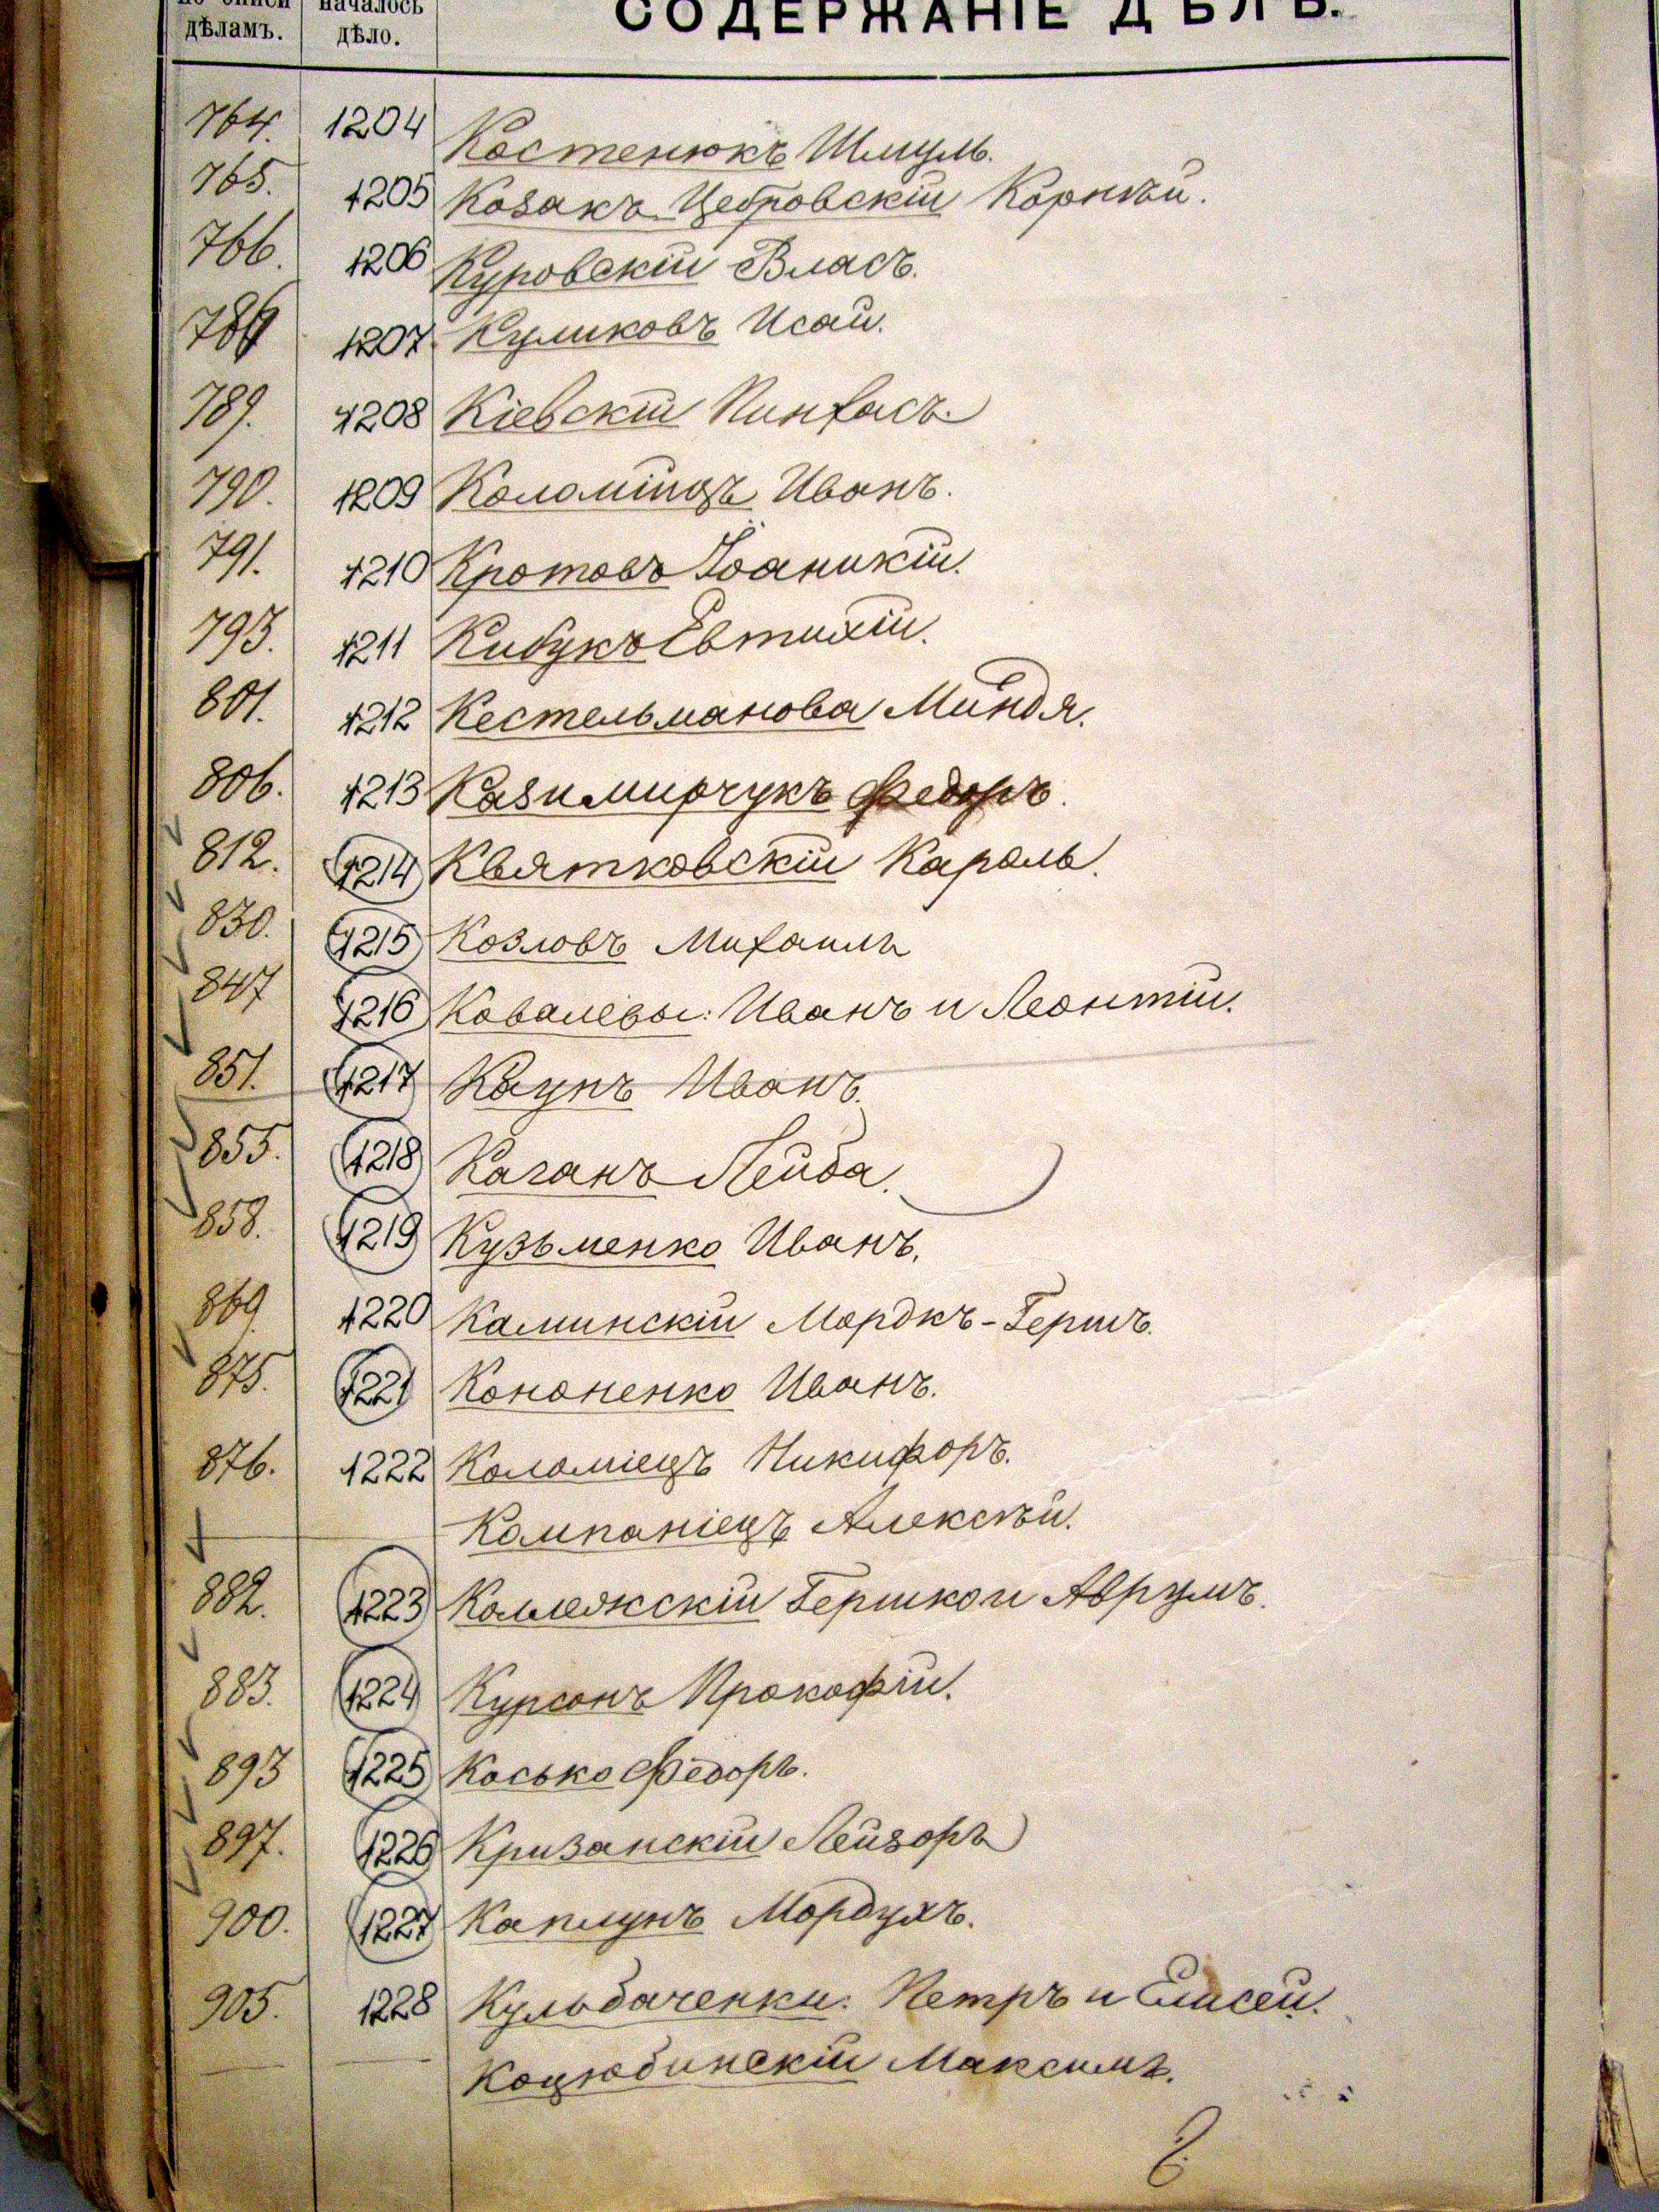 по описи началось СОДЕРЖАНІЕ ДѢЛЪ.
дѣламъ. дѣло.
764. 1204 Костенюкъ Шмуль.
765. 1205 Козакъ Цебровскій Корнѣй.
766. 1206 Куровскій Власъ.
1207 Куликовъ Исай.
789. 1208 Кіевскій Пинхасъ.
790. 1209 Коломіецъ Иванъ.
791. 1210 Кротовъ Іоаникій.
793. 1211 Кибукъ Евтихій.
801. 1212 Кестельманова Миндя.
806. 1213 Казимирчукъ Федоръ.
812. 1214 Квятковскій Кароль.
830. 1215 Козловъ Михаилъ
847 1216 Ковалевы: Иванъ и Леонтій.
851. 1217 Каунъ Иванъ.
855. 1218 Каганъ Лейба.
858. 1219 Кузьменко Иванъ.
869. 1220 Каминскій Мордкъ-Гершъ.
875. 1221 Кононенко Иванъ.
876. 1222 Коломіецъ Никифоръ.
Компаніецъ Алексѣй.
882. 1223 Коллежскій Гершко и Аврумъ.
883. 1224 Курсонъ Прокофій.
893 1225 Косько Федоръ.
897. 1226 Кризанскій Лейзоръ
900. 1227 Каплунъ Мордухъ.
905. 1228 Кульбаченки: Петръ и Елисей.
Коцюбинскій Максимъ.